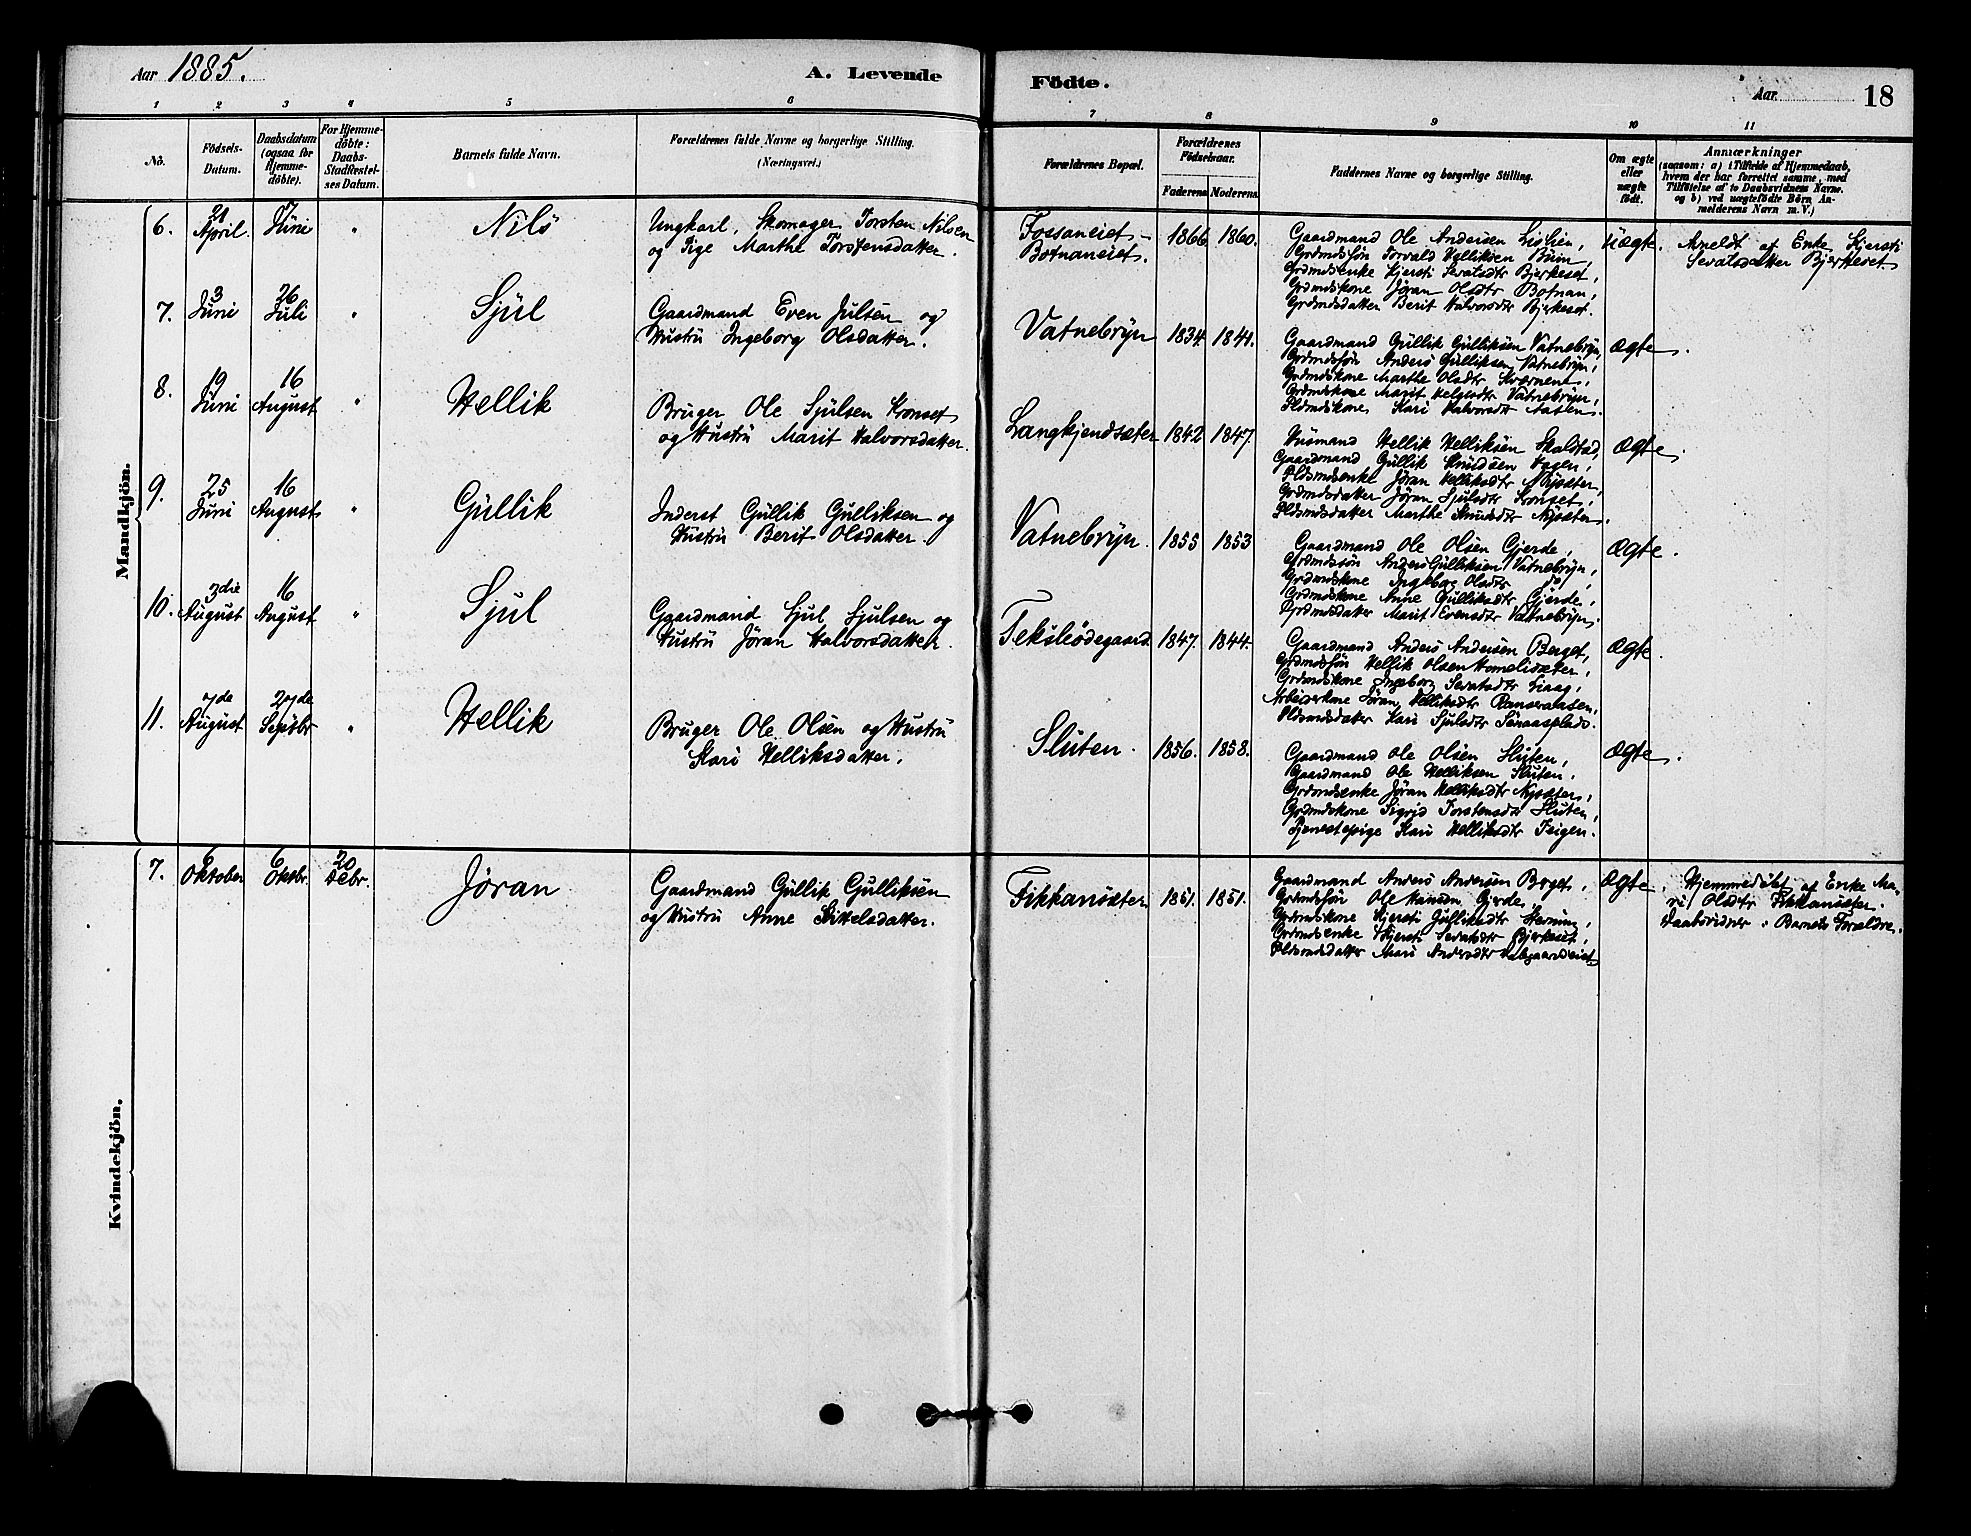 Aar 1885.
A. Levende Födte.
Aar 18
1 2 3 4 5 6 7 8 9 10 11
No.
Födsels-Datum.
Daabsdatum (ogsaa for Hjemme-döbte).
For Hjemme-döbte: Daabs-Stadfæstel-ses Datum.
Barnets fulde Navn.
Forældrenes fulde Navne og borgerlige Stilling. (Næringsvei.)
Forældrenes Bopæl.
Forældrenes Födselsaar.
Faderens Moderens
Faddernes Navne og borgerlige Stilling.
Om ægte eller uægte födt.
Anmærkninger
(saasom: a) i Tilfælde af Hjemmedaab, hvem der har forrettet samme, med Tilföielse af to Daabsvidners Navne. og b) ved uægtefödte Börn An-melderens Navn m. V.)
Mandkjön.
6. 21 April. 7 Juni " Nils
Ungkarl, Skomager Torsten Nilsen
og Pige Marthe Torstensdatter.
Fossaneiet -
Botnaneiet.
1866 1860.
Gaardmand Ole Andersen Lislien,
Grdmdsøn Torvald Helliksen Bum,
Grdmdsenke Kjersti Sevatsdtr Bjerkeset,
Grdmdskone Jøran Olsdtr Botnan,
Grdmdsdatter Berit Halvorsdtr Bjerkeset.
Uægte.
Anmeldt af Enke Kjersti
Sevatsdatter Bjerkeset.
7. 3 Juni 26 Juli " Sjul
Gaardmand Even Julsen og
Hustru Ingeborg Olsdatter.
Vatnebryn 1834 1841.
Gaardmand Gullik Gulliksen Vatnebryn,
Grdmdsøn Anders Gulliksen Vatnebryn,
Grdmdskone Marthe Olsdtr Kværnene,
Grdmdskone Marit Helgesdtr Vatnebryn,
Pldsmdskone Kari Halvorsdtr Aasen.
Ægte.
8. 19 Juni 16 August " Hellik
Bruger Ole Sjulsen Tronset
og Hustru Marit Halvorsdatter.
Langkjendsæter 1842 1847.
Husmand Hellik Helliksen Skalstad,
Gaardmand Gullik Knudsen Vagen,
Pldsmdsenke Jøran Helliksdtr Nysæter,
Grdmdsdatter Jøran Sjulsdtr Tronset,
Pldsmdsdatter Marthe Knudsdtr Nysæter.
Ægte.
9. 25 Juni 16 August " Gullik
Inderst Gullik Gulliksen og
Hustru Berit Olsdatter.
Vatnebryn. 1855 1853
Gaardmand Ole Olsen Gjerde,
Grdmdssøn Anders Gulliksen Vatnebryn,
Grdmdskone Ingeborg Olsdtr do,
Grdmdskone Anne Gulliksdtr Gjerde,
Grdmdsdatter Marit Evensdtr Vatnebryn.
Ægte.
10. 3die August 16 August " Sjul
Gaardmand Sjul Sjulsen og
Hustru Jøran Halvorsdatter.
Teksleødegaard. 1847. 1844.
Gaardmand Anders Andersen Berget,
Grdmdsøn Hellik Olsen Homelisæter,
Grdmdskone Ingeborg Sevatsdtr Liaag,
Arbeiderkone Jøran Helliksdtr Ramsraaasen,
Pldsmdsdatter Kari Sjulsdtr Sønaasplads.
Ægte.
11. 7de August 27de Septbr " Hellik
Bruger Ole Olsen og Hustru
Kari Helliksdatter.
Sluten. 1856. 1858.
Gaardmand Ole Olsen Sluten,
Gaardmand Ole Helliksen Sluten,
Grdmdsenke Jøran Helliksdtr Nysæter,
Grdmdskone Sigrid Torstensdtr Sluten,
Tjenestepige Kari Helliksdtr Teigen.
Ægte.
Kvindekjön.
7. 6 Oktober 6 Oktbr. 20 Decbr. Jøran
Gaardmand Gullik Gulliksen
og Hustru Anne Kittelsdatter.
Fikkansæter 1851. 1851.
Gaardmand Anders Andersen Berget,
Grdmdsøn Ole Hansen Gjerde,
Grdmdskone Kjersti Gulliksdtr
Grdmdsenke Kjersti Sevatsdtr Bjerkeset,
Pldsmdsdatter Mari Andersdtr Valsgaardeiet.
Ægte.
Hjemmedøbt af Enke Ma-
ri Olsdtr Fikkansæter.
Daabsvidner: Barnets Forældre.